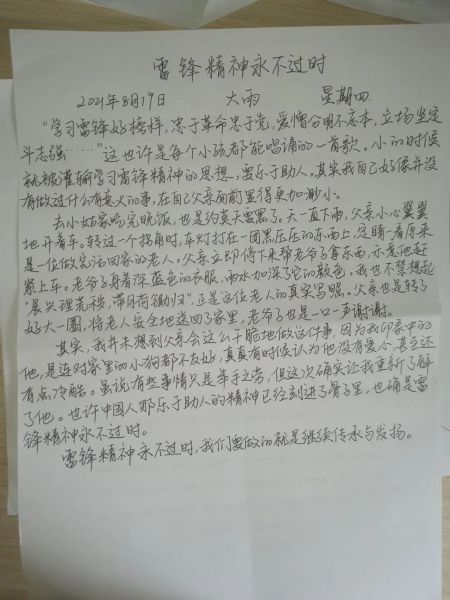 雷锋精神永不过时
2021年8月19日 大雨 星期四
“学习雷锋好榜样，忠于革命忠于党，爱憎分明不忘本，立场坚定
斗志强……”这也许是每个小孩都能唱诵的一首歌。小的时候
就被灌输学习雷锋精神的思想，要乐于助人。其实我自己好像并没
有做过什么有意义的事，在自己父亲面前显得更加渺小。
去小姑家吃完晚饭，也是约莫天黑了。天一直下雨，父亲小心翼翼
地开着车。转过一个拐角时，车灯打在一团黑压压的东西上，定睛一看原来
是一位做完活回家的老人。父亲立即停下来帮老爷子拿东西，示意他赶
紧上车。老爷子身着深蓝色的衣服，雨水加深了它的颜色。我也不禁想起
“晨兴理荒秽，带月荷锄归”，正是这位老人的真实写照。父亲也是转了
好大一圈，将老人安全地送回了家里，老爷子也是一口一声谢谢。
其实，我并未想到父亲会这么干脆地做这件事，因为我印象中的
他，是连对家里的小狗都不友好，真真有时候认为他没有爱心，甚至还
有点冷酷。虽说有些事情只是举手之劳，但这次确实让我重新了解
了他。也许中国人那乐于助人的精神已经刻进了骨子里，也确是雷
锋精神永不过时。
雷锋精神永不过时，我们要做的就是继续传承与发扬。